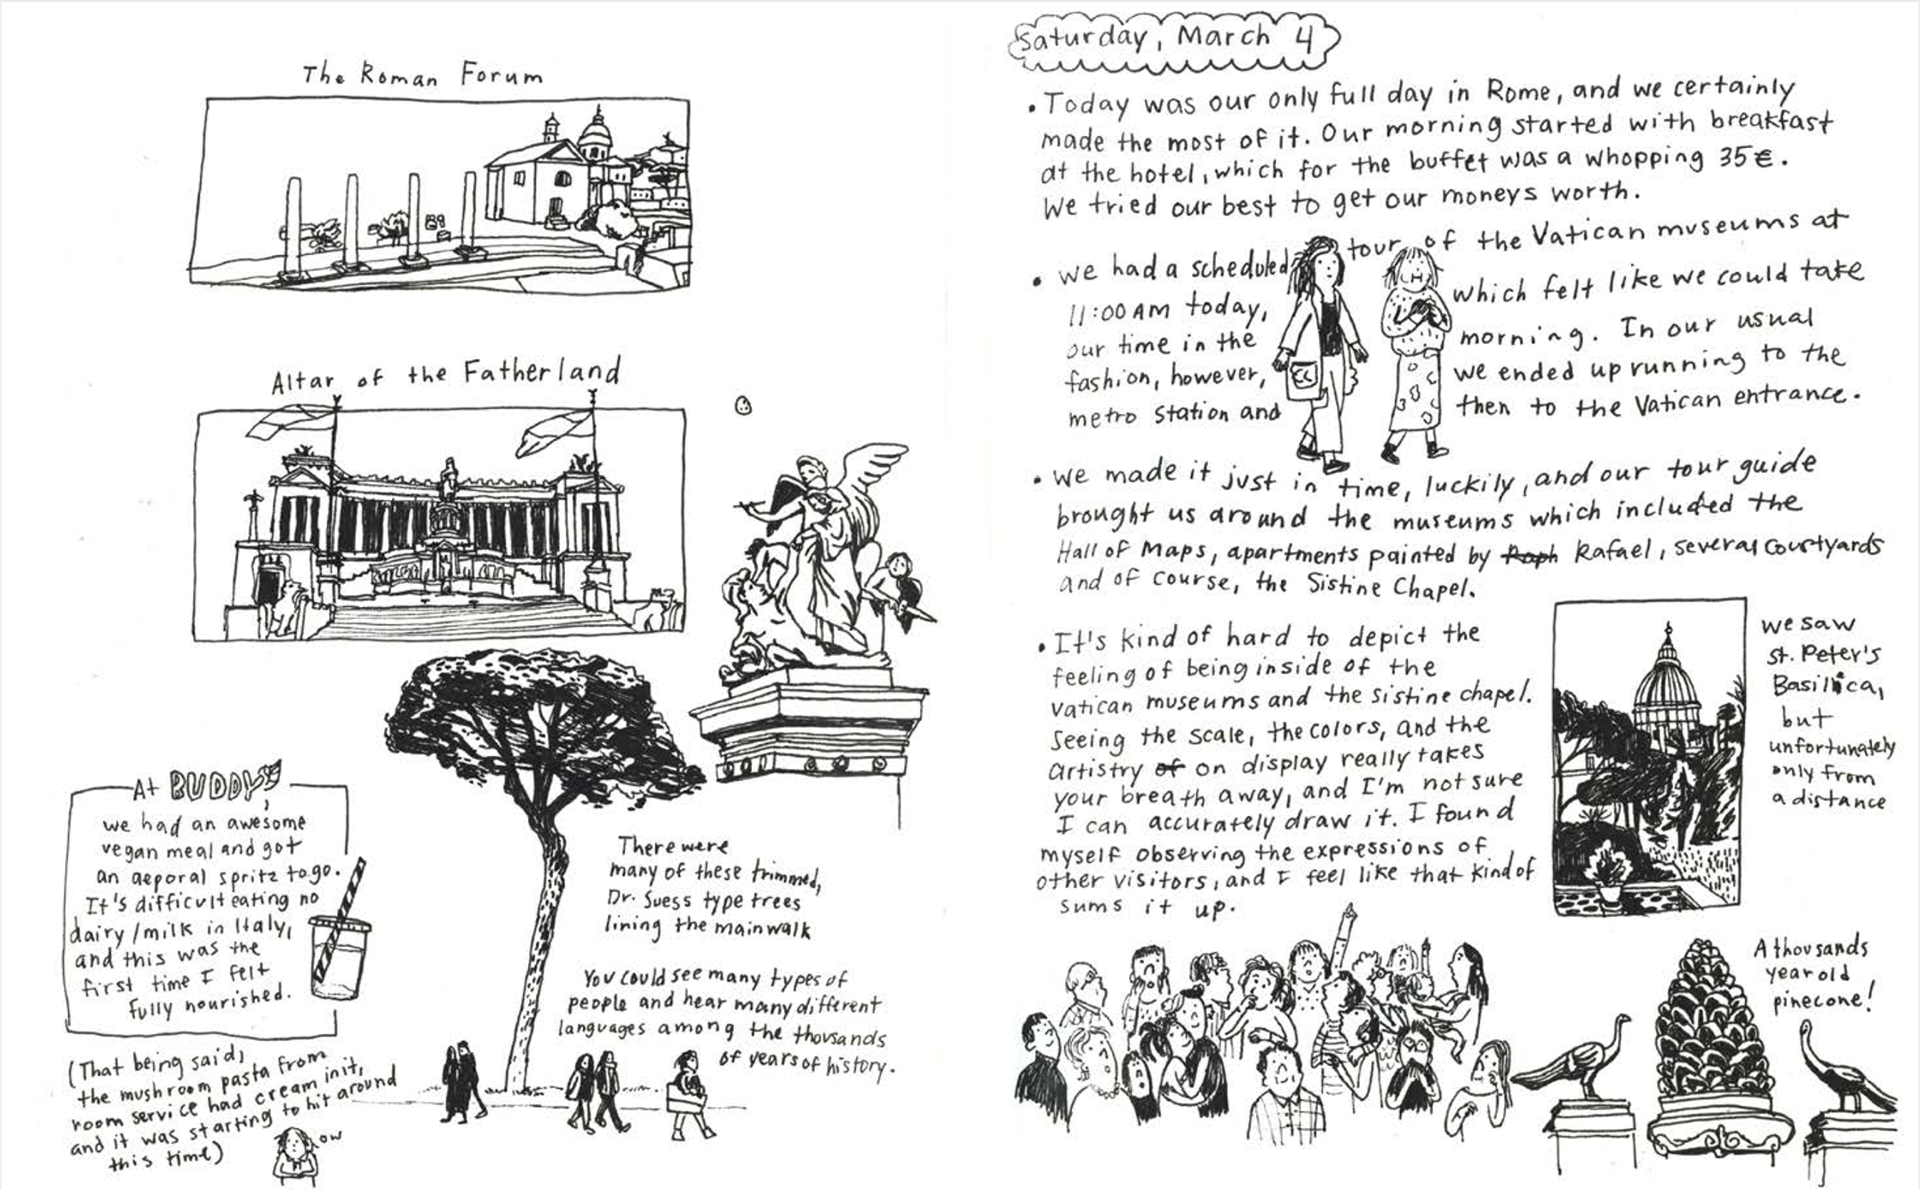 The Roman Forum
Altar of the Fatherland
At BUDDY,
we had an awesome
vegan meal and got
an aeporal spritz to go.
It's difficult eating no
dairy/milk in Italy,
and this was the
first time I felt
fully nourished.
(That being said,
the mushroom pasta from
room service had cream in it,
and it was starting to hit around
this time)
ow
There were
many of these trimmed,
Dr. Suess type trees
lining the main walk
You could see many types of
people and hear many different
languages among the thousands
of years of history.
Saturday, March 4
• Today was our only full day in Rome, and we certainly
made the most of it. Our morning started with breakfast
at the hotel, which for the buffet was a whopping 35€.
We tried our best to get our moneys worth.
• we had a scheduled tour of the Vatican museums at
11:00 AM today, which felt like we could take
our time in the morning. In our usual
fashion, however, we ended up running to the
metro station and then to the Vatican entrance.
• We made it just in time, luckily, and our tour guide
brought us around the museums which included the
Hall of Maps, apartments painted by Raph Rafael, several courtyards
and of course, the Sistine Chapel.
• It's kind of hard to depict the
feeling of being inside of the
Vatican museums and the sistine chapel.
Seeing the scale, the colors, and the
artistry of on display really takes
your breath away, and I'm not sure
I can accurately draw it. I found
myself observing the expressions of
other visitors, and I feel like that kind of
sums it up.
we saw
St. Peter's
Basilica,
but
unfortunately
only from
a distance
A thousands
year old
pinecone!